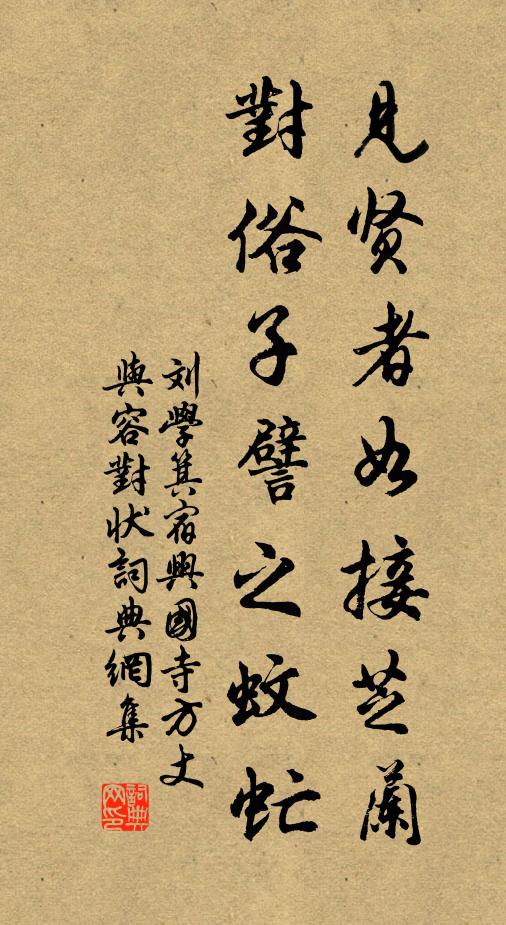 見贤者如接芝蘭
對俗子譬之蚊虻
刘學箕宿興國寺方丈
與容對状詞典網集
詞典
网印